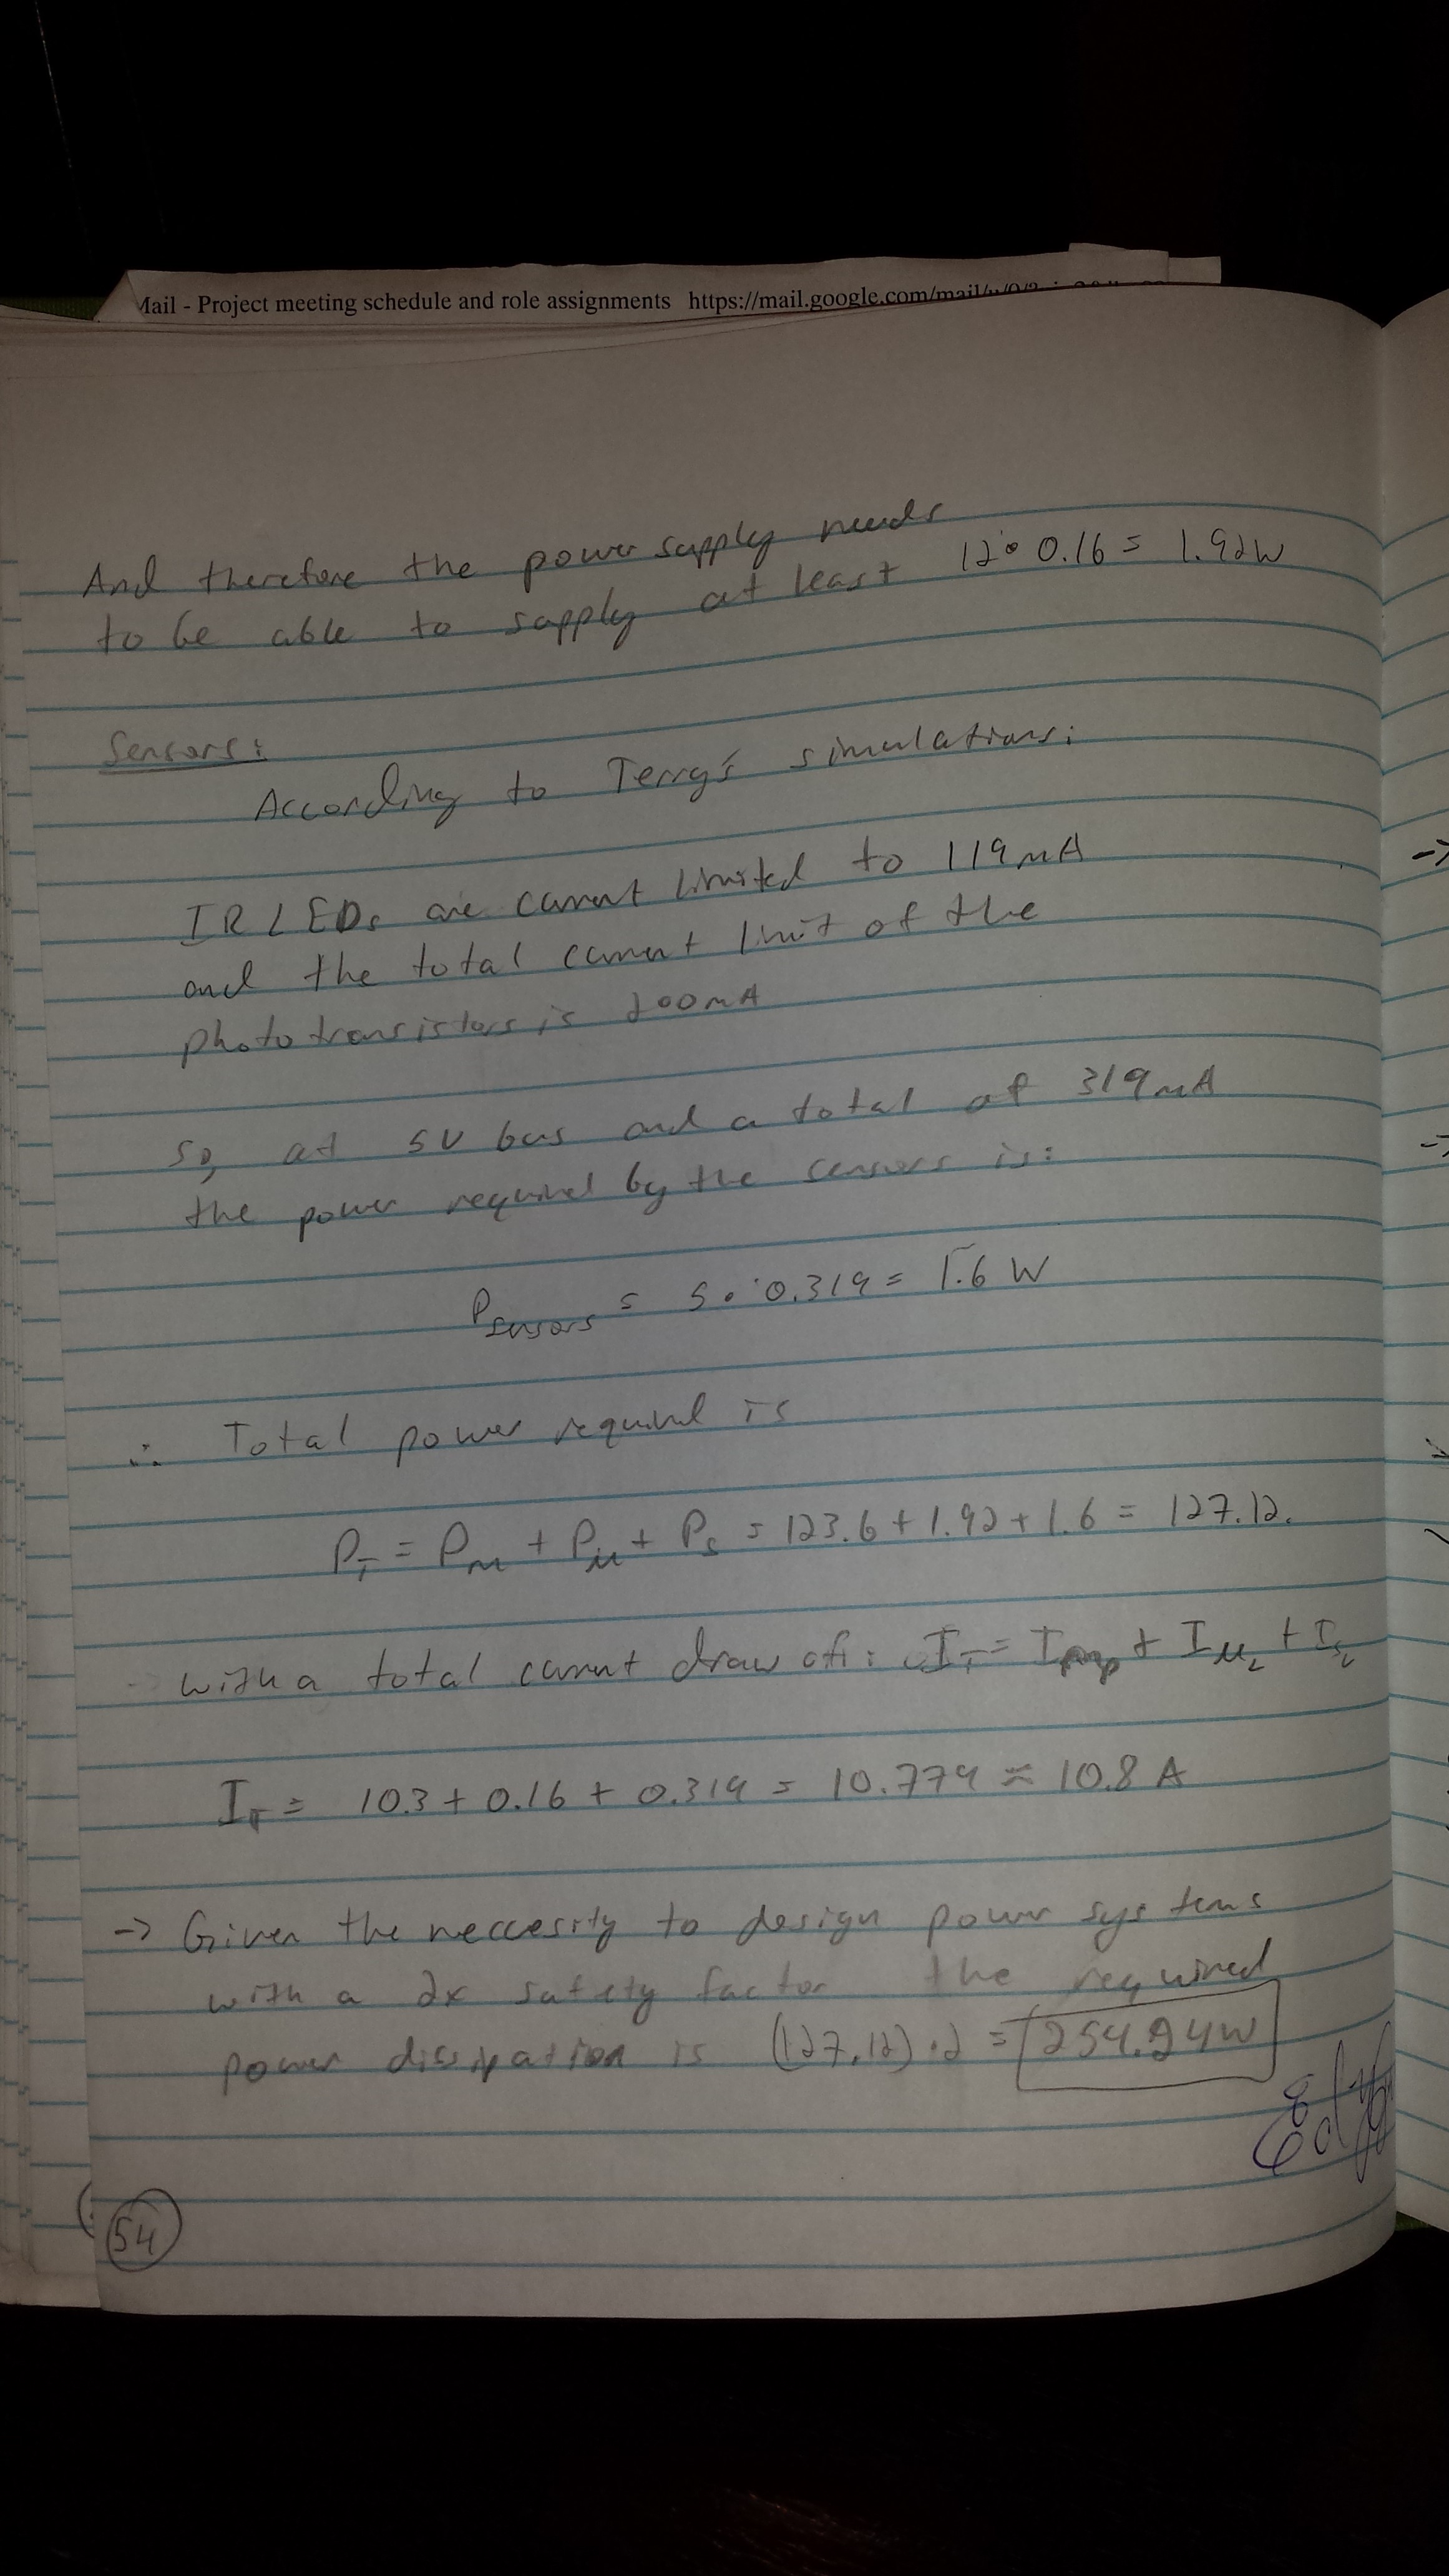 Mail - Project meeting schedule and role assignments https://mail.google.com/mail/u/0/?
And therefore the power supply needs
to be able to supply at least 12 • 0.16 = 1.92W
Sensors:
According to Terry's simulations:
IR LEDs are current limited to 119mA
and the total current limit of the
phototransistors is 200mA
So, at 5V bus and a total of 319mA
the power required by the sensors is:
Psensors = 5 • 0.319 = 1.6 W
∴ Total power required is
PT = Pm + Pμ + Ps = 123.6 + 1.92 + 1.6 = 127.12.
with a total current draw of: IT = + Iμ + Is
IT = 10.3 + 0.16 + 0.319 = 10.779 ≈ 10.8 A
-> Given the neccesity to design power systems
with a 2x safety factor the required
power dissipation is (127.12) • 2 = 254.24W
54